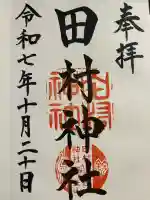 奉拝
田村神社
令和七年十月二十日